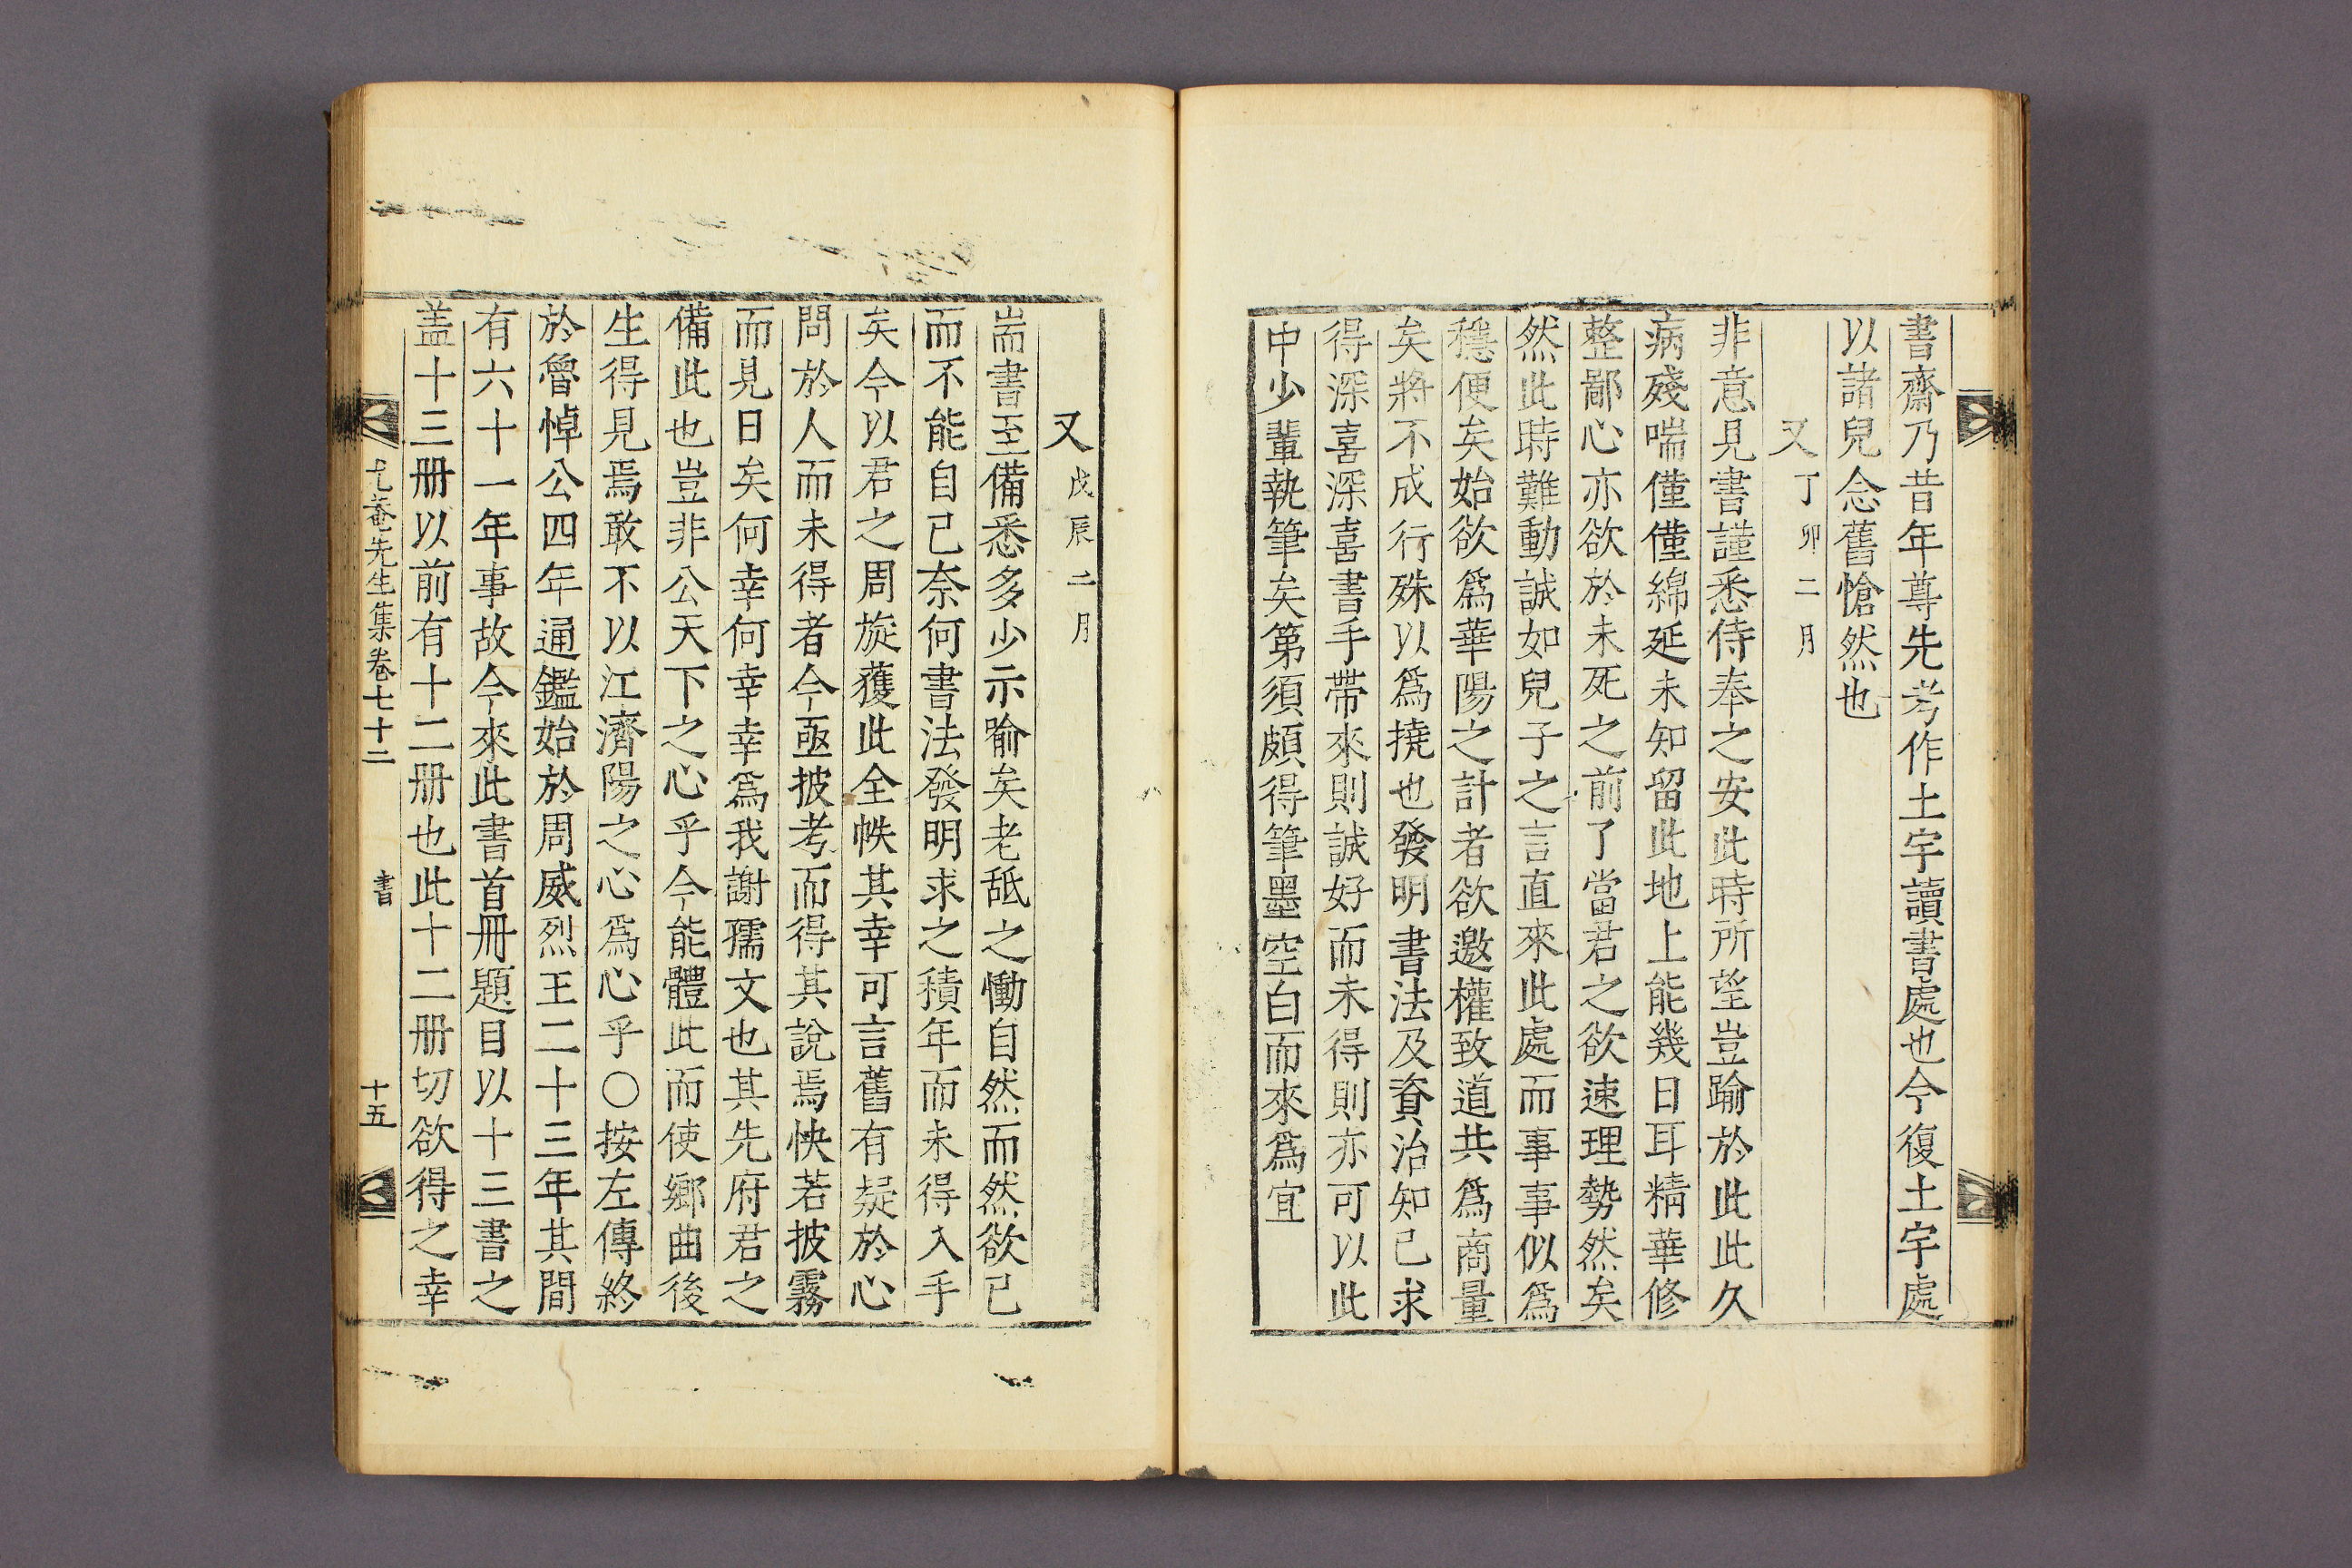 書齋乃昔年尊先考作土宇讀書處也今復土宇處
以諸兒念舊愴然也
又丁卯二月
非意見書謹悉侍奉之安此時所望豈踰於此此久
病殘喘僅僅綿延未知留此地上能幾日耳精華修
整鄙心亦欲於未死之前了當君之欲速理勢然矣
然此時難動誠如兒子之言直來此處而事事似爲
穩便矣始欲爲華陽之計者欲邀權致道共爲商量
矣將不成行殊以爲撓也發明書法及資治知已求
得深喜深喜書手帶來則誠好而未得則亦可以此
中少輩執筆矣第須頗得筆墨空白而來爲宜
又戊辰二月
耑書至備悉多少示喻矣老舐之慟自然而然欲已
而不能自已奈何書法發明求之積年而未得入手
矣今以君之周旋獲此全帙其幸可言舊有疑於心
問於人而未得者今亟披考而得其說焉怏若披霧
而見日矣何幸何幸幸爲我謝孺文也其先府君之
備此也豈非公天下之心乎今能體此而使鄉曲後
生得見焉敢不以江濟陽之心爲心乎〇按左傳終
於魯悼公四年通鑑始於周威烈王二十三年其間
有六十一年事故今來此書首冊題目以十三書之
盖十三册以前有十二册也此十二册切欲得之幸
先生集卷七十二 書 十五